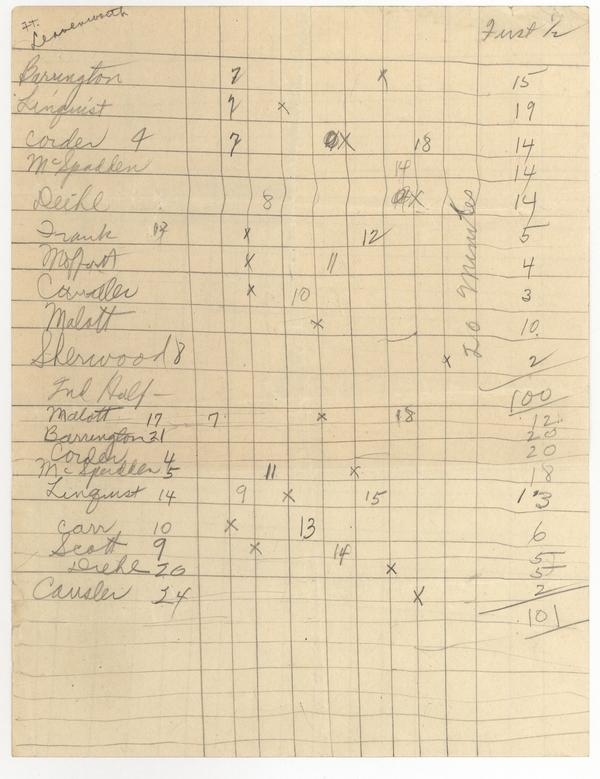 Ft.
Leavenworth
First 1/2
Barrington 7 x 15
Linquist 7 x 19
Corder 4 7 X 18 14
McSpadden 14 14
Diehl 8 X 14
Frank 13 x 12 5
Moffatt x 11 4
Causler x 10 3
Malott x 10
Sherwood 8 x 2
20 Minutes
2nd Half - 100
Malott 17 7 x 18 12
Barrington 21 20
Corder 4 20
McSpadden 5 11 x 18
Linquist 14 9 x 15 13
Carr 10 x 13 6
Scott 9 x 14 5
Diehl 20 x 5
Causler 24 x 2
101